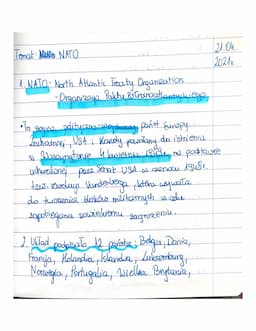 Temat: NATO
21.04.
2021r.
1. NATO - North Atlantic Treaty Organization
- Organizacja Paktu Północnoatlantyckiego
• To sojusz polityczno-wojskowy państ Europy
Zachodniej, USA i Kanady powołany do istnienia
w Waszyngtonie 4 kwietnia 1949r. na podstawie
uchwalonej przez senat USA w czerwcu 1948r.
tzw. rezolucji Vandenberga, która wzywała
do tworzenia bloków militarnych w celu
zapobiegania sowieckiemu zagrożeniu.
2. Układ podpisało 12 państw: Belgia, Dania,
Francja, Holandia, Islandia, Luksemburg,
Norwegia, Portugalia, Wielka Brytania,